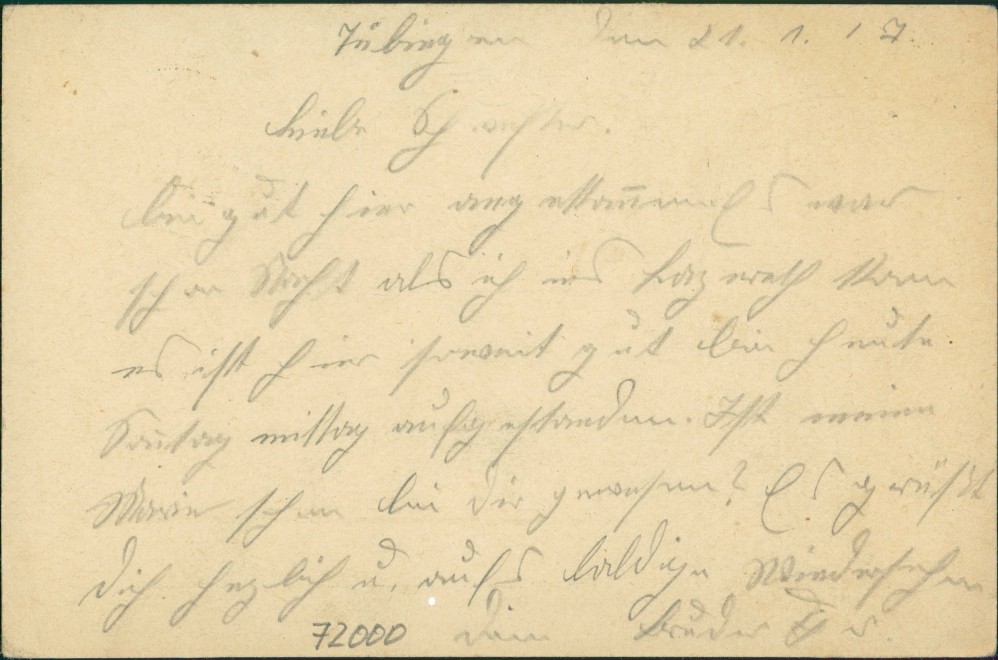 Tübingen den 21. 1. 17.
Liebe Schwester.
bin gut hier angekom̅en Es war
schon Nacht als ich ins Lazerath kam
es ist hier soweit gut bin heute
Son̅tag mittag aufgestanden. Ist meine
Marie schon bei dir gewesen? Es grüßt
dich herzlich u. aufs baldige Wiedersehen
dein Bruder Fr.
72000